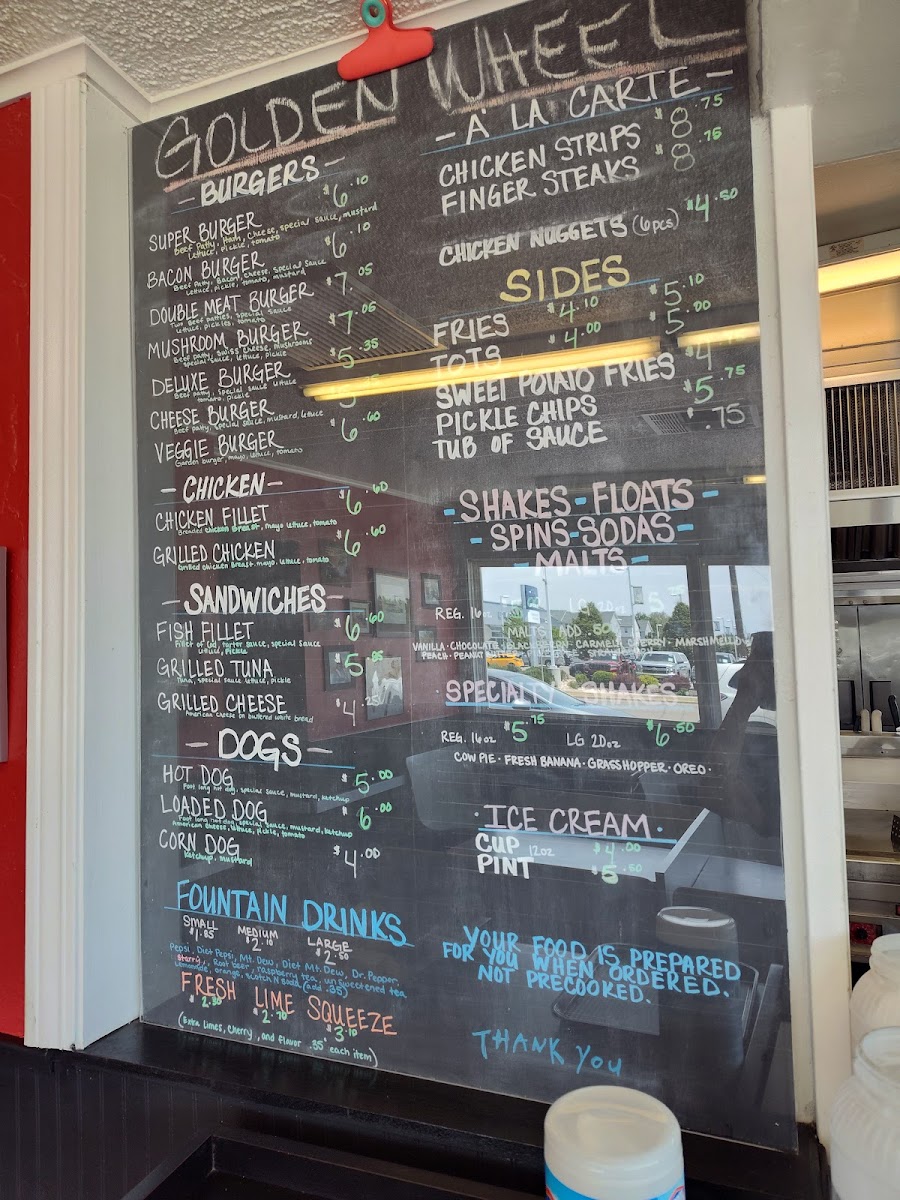 GOLDEN WHEEL
- BURGERS -
SUPER BURGER $6.10
Beef Patty, Ham, Cheese, special sauce, mustard
lettuce, pickle, tomato
BACON BURGER $6.10
Beef Patty, Bacon, Cheese, Special Sauce
lettuce, pickle, tomato, mustard
DOUBLE MEAT BURGER $7.05
Two Beef patties, special sauce
lettuce, pickles, tomato
MUSHROOM BURGER $7.05
Beef patty, Swiss cheese, mushrooms
special sauce, lettuce, pickle
DELUXE BURGER $5.35
Beef patty, special sauce lettuce
tomato, pickle
CHEESE BURGER
Beef patty, special sauce, mustard, lettuce
VEGGIE BURGER $6.60
Garden burger, mayo, lettuce, tomato
- CHICKEN -
CHICKEN FILLET $6.60
Breaded chicken breast, mayo lettuce, tomato
GRILLED CHICKEN $6.60
Grilled chicken breast, mayo, lettuce, tomato
- SANDWICHES
FISH FILLET $6.60
Fillet of Cod, tarter sauce, special sauce
lettuce, pickle
GRILLED TUNA $5.85
Tuna, special sauce lettuce, pickle
GRILLED CHEESE $4.25
American cheese on buttered white bread
- DOGS -
HOT DOG $5.00
Foot long hot dog, special sauce, mustard, ketchup
LOADED DOG $6.00
Foot long hot dog, special sauce, mustard, ketchup
American cheese, lettuce, pickle, tomato
CORN DOG $4.00
Ketchup, mustard
FOUNTAIN DRINKS
SMALL MEDIUM LARGE
$1.85 $2.10 $2.50
Pepsi, Diet Pepsi, Mt. Dew, Diet Mt. Dew, Dr. Pepper,
Starry, Root beer, raspberry tea, unsweetened tea,
Lemonade, orange, Scotch N Soda (add .35)
FRESH LIME SQUEEZE
$2.35 $2.70 $3.10
(Extra limes, Cherry, and flavor .35¢ each item)
- À LA CARTE -
CHICKEN STRIPS $8.75
FINGER STEAKS $8.75
CHICKEN NUGGETS (6pcs) $4.50
SIDES
FRIES $4.10 $5.10
TOTS $4.00 $5.00
SWEET POTATO FRIES $4
PICKLE CHIPS $5.75
TUB OF SAUCE .75
- SHAKES - FLOATS -
- SPINS - SODAS -
- MALTS -
REG. 16oz LG 20oz
MALTS ADD .50
VANILLA · CHOCOLATE · CARMEL · CHERRY · MARSHMELLOW
PEACH · PEANUT BUTTER
SPECIALTY SHAKES
REG. 16oz $5.75 LG 20oz $6.50
COW PIE · FRESH BANANA · GRASSHOPPER · OREO ·
· ICE CREAM ·
CUP 12oz $4.00
PINT $5.50
YOUR FOOD IS PREPARED
FOR YOU WHEN ORDERED.
NOT PRECOOKED.
THANK YOU